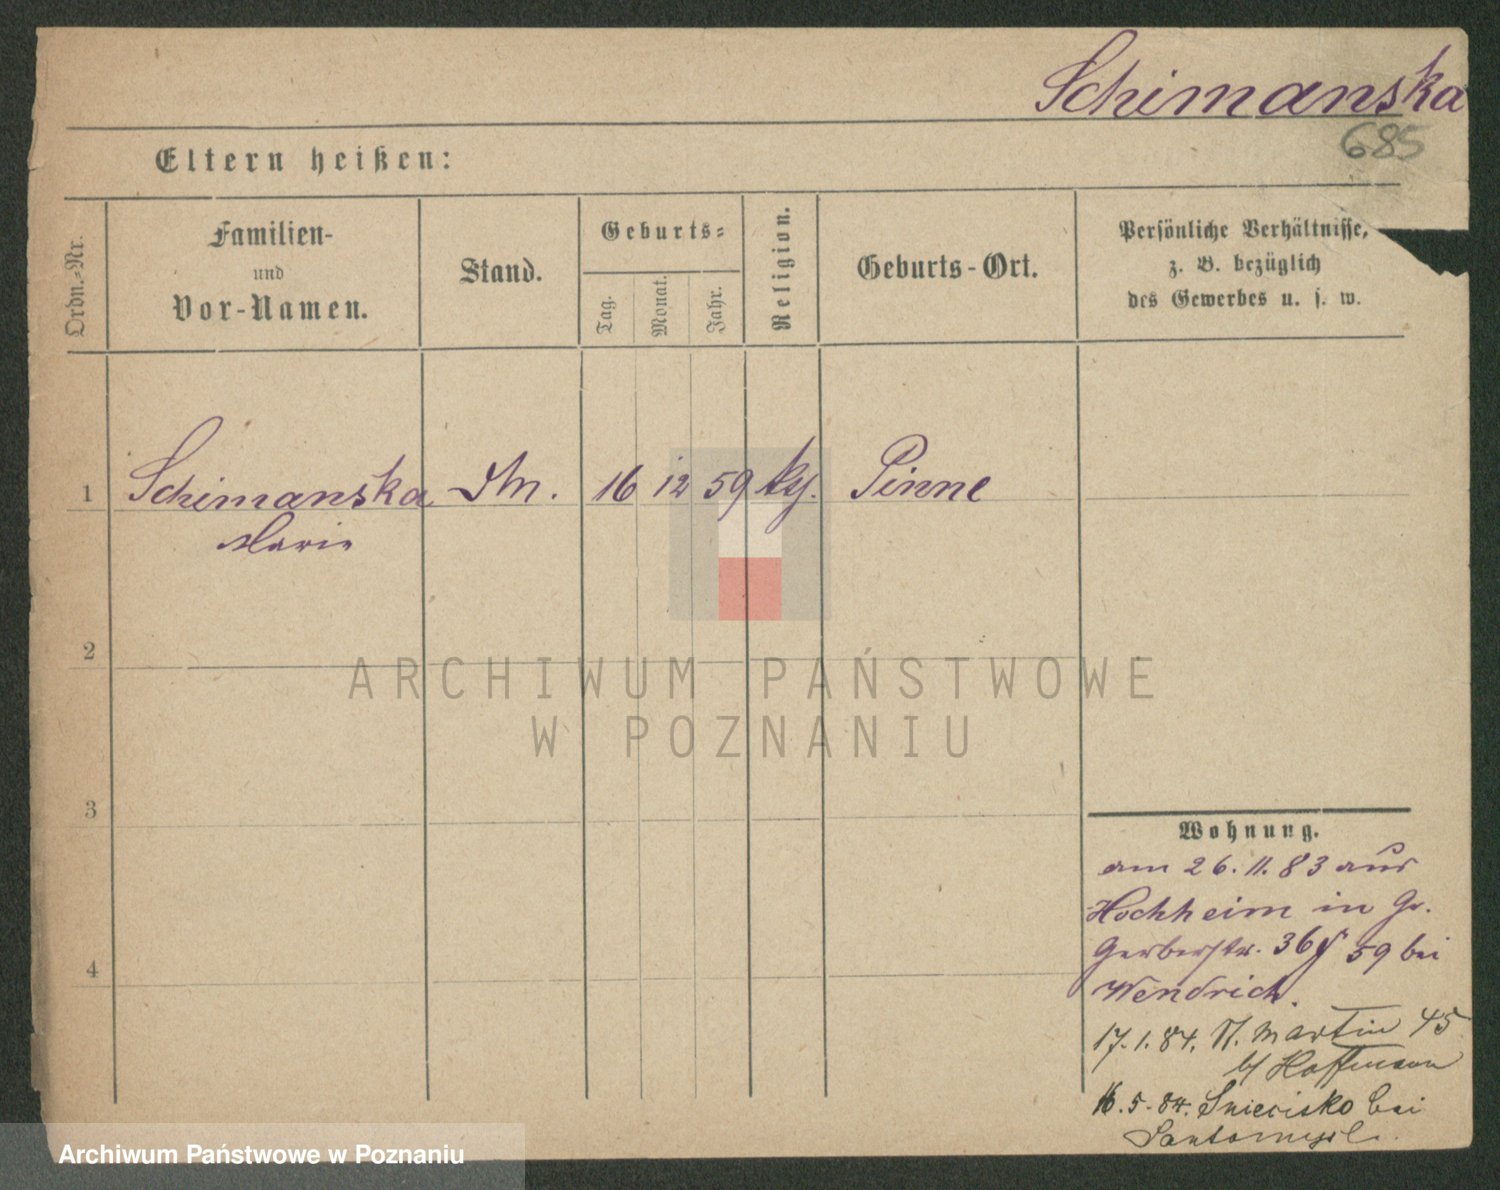 Schimanska
685
Eltern heißen:
Ordn.-Nr.
Familien-
und
Vor-Namen.
Stand.
Geburts-
Tag.
Monat.
Jahr.
Religion.
Geburts-Ort.
Persönliche Verhältnisse,
z. B. bezüglich
des Gewerbes u. s. w.
1 Schimanska 16 12 59 Pinne
Marie
2
3
4
Wohnung.
am 26.11.83 aus
Hochheim in Gr.
Gerberstr. 36 59 bei
Wendrich.
17.1.84. St. Martin 45
b/ Hoffmann
16.5.84. Sniecisko bei
Santomysl.
ARCHIWUM PAŃSTWOWE
W POZNANIU
Archiwum Państwowe w Poznaniu